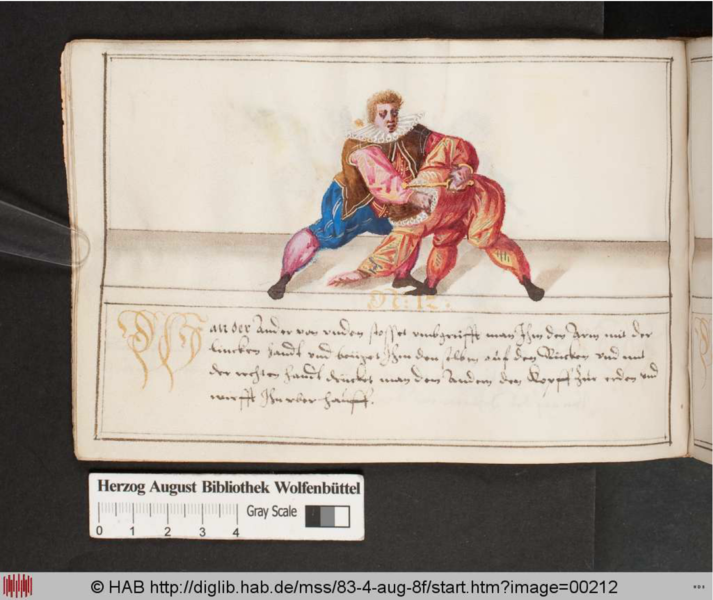 N: 12.
Wan der Ander von vnden stosset vmbgreifft man Ihm den Arm mit der
lincken handt vnd beuget Ihm den selben auf den Rücken vnd mit
der rechten handt drücket man dem Andern den Kopff zur erden vnd
wirfft Ihn vber hauff.
Herzog August Bibliothek Wolfenbüttel
Gray Scale
0 1 2 3 4
© HAB http://diglib.hab.de/mss/83-4-aug-8f/start.htm?image=00212